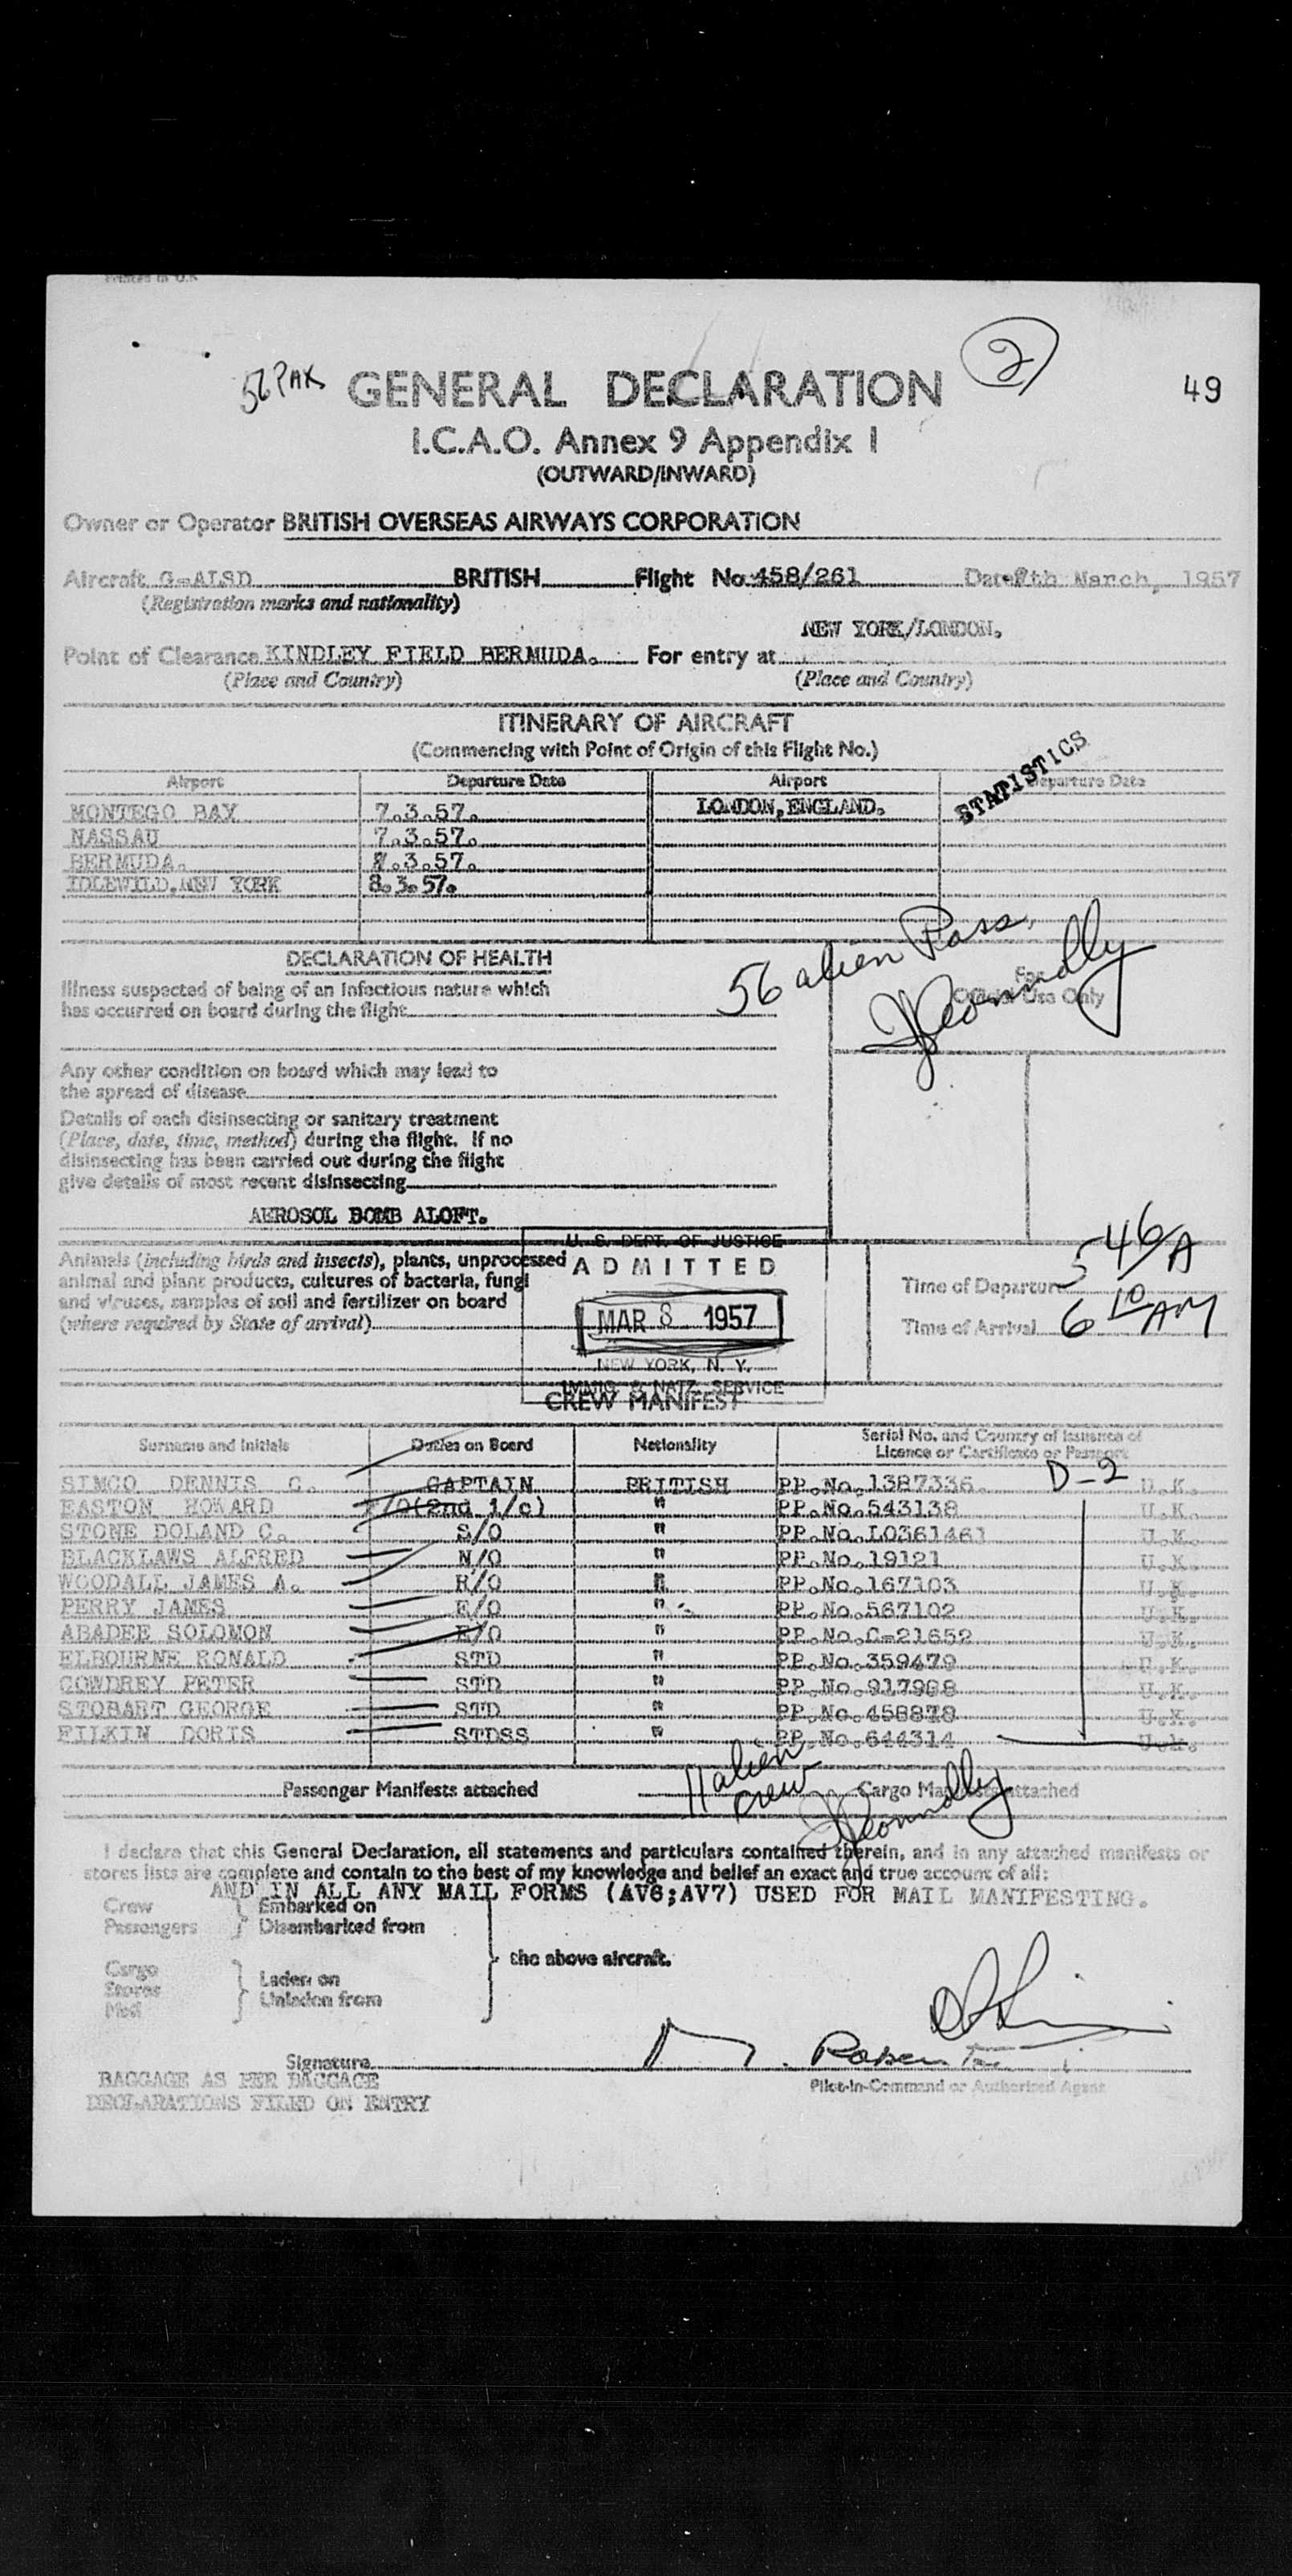 Printed in U.K
2
56 PAX
GENERAL DECLARATION
49
I.C.A.O. Annex 9 Appendix 1
(OUTWARD/INWARD)
Owner or Operator BRITISH OVERSEAS AIRWAYS CORPORATION
Aircraft G-ALSD BRITISH Flight No. 458/261 Date 8th March, 1957
(Registration marks and nationality)
NEW YORK/LONDON.
Point of Clearance KINDLEY FIELD BERMUDA. For entry at
(Place and Country) (Place and Country)
ITINERARY OF AIRCRAFT
(Commencing with Point of Origin of this Flight No.)
STATISTICS
Airport Departure Date Airport Departure Date
MONTEGO BAY 7.3.57. LONDON, ENGLAND.
NASSAU 7.3.57.
BERMUDA. 8.3.57.
IDLEWILD, NEW YORK 8.3.57.
56 alien Pass.
JJConnolly
DECLARATION OF HEALTH
Illness suspected of being of an infectious nature which
has occurred on board during the flight
For
Official Use Only
Any other condition on board which may lead to
the spread of disease
Details of each disinsecting or sanitary treatment
(Place, date, time, method) during the flight. If no
disinsecting has been carried out during the flight
give details of most recent disinsecting
AEROSOL BOMB ALOFT.
U. S. DEPT. OF JUSTICE
ADMITTED
MAR 8 1957
NEW YORK, N. Y.
IMMIG. & NATZ. SERVICE
Animals (including birds and insects), plants, unprocessed
animal and plant products, cultures of bacteria, fungi
and viruses, samples of soil and fertilizer on board
(where required by State of arrival)
Time of Departure 5 46/A
Time of Arrival 6 10 AM
CREW MANIFEST
Surname and Initials Duties on Board Nationality Serial No. and Country of Issuance of
Licence or Certificate or Passport
D-2
SIMCO DENNIS C. CAPTAIN BRITISH PP.No.1387336. U.K.
EASTON HOWARD F/O(2nd i/c) " PP.No.543138 U.K.
STONE DOLAND C. S/O " PP.No.L0361461 U.K.
BLACKLAWS ALFRED N/O " PP.No.19121 U.K.
WOODALL JAMES A. R/O " PP.No.167103 U.K.
PERRY JAMES E/O " PP.No.567102 U.K.
ABADEE SOLOMON E/O " PP.No.C-21652 U.K.
ELBOURNE RONALD STD " PP.No.359479 U.K.
COWDREY PETER STD " PP.No.917988 U.K.
STOBART GEORGE STD " PP.No.458878 U.K.
FILKIN DORIS STDSS " PP.No.644314 U.K.
11 alien
crew
JJConnolly
Passenger Manifests attached Cargo Manifests attached
I declare that this General Declaration, all statements and particulars contained therein, and in any attached manifests or
stores lists are complete and contain to the best of my knowledge and belief an exact and true account of all:
AND IN ALL ANY MAIL FORMS (AV6;AV7) USED FOR MAIL MANIFESTING.
Crew Embarked on
Passengers Disembarked from
the above aircraft.
Cargo Laden on
Stores Unladen from
Mail
Signature
Pilot-in-Command or Authorised Agent
BAGGAGE AS PER BAGGAGE
DECLARATIONS FILED ON ENTRY